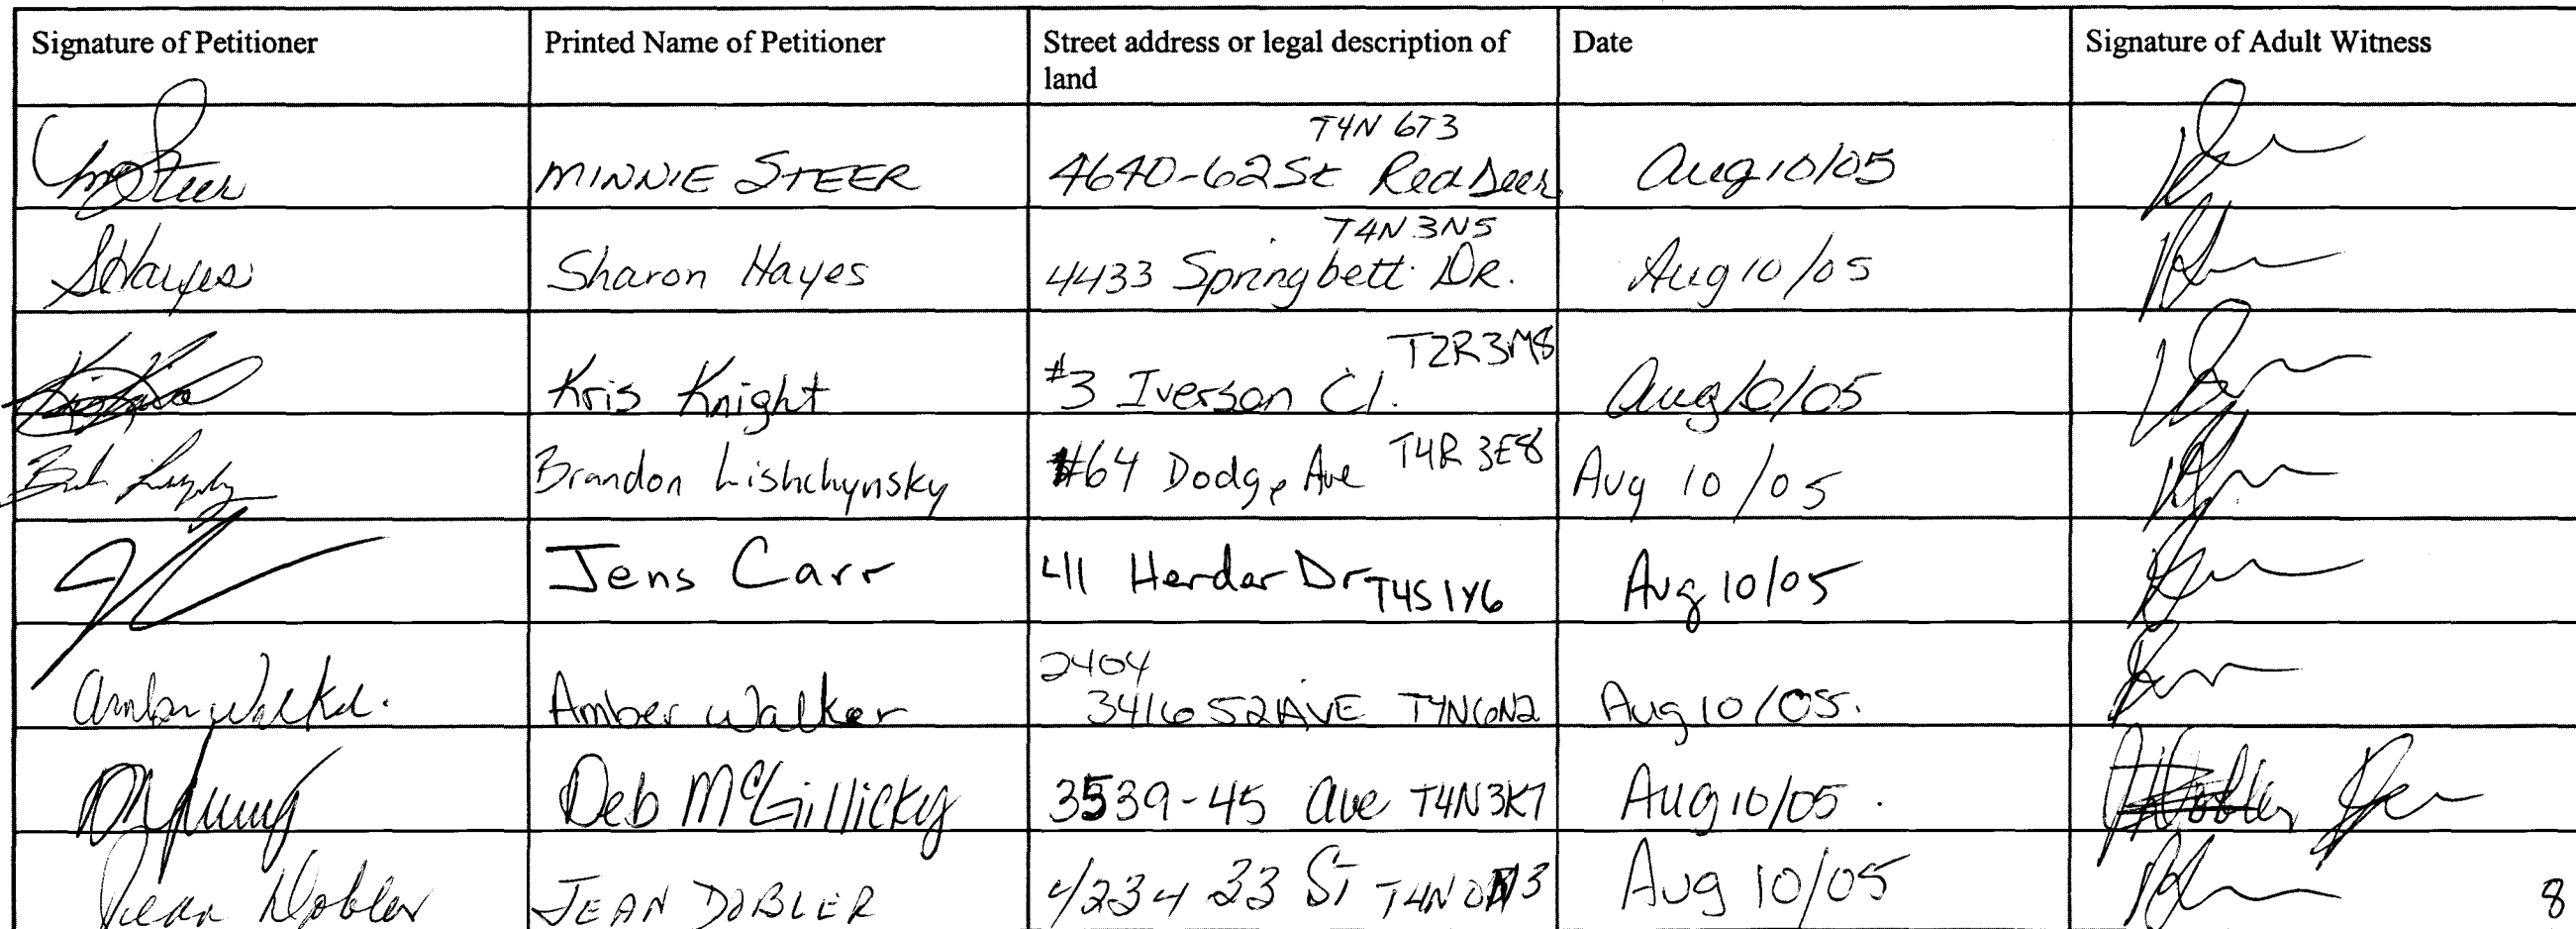 Signature of Petitioner Printed Name of Petitioner Street address or legal description of land Date Signature of Adult Witness
MINNIE STEER T4N 6T3 4640-62 St Red Deer Aug 10/05
SHayes Sharon Hayes T4N 3N5 4433 Springbett Dr. Aug 10/05
Kris Knight #3 Iverson Cl. T2R3M8 Aug 10/05
Brandon Lishchynsky #64 Dodge Ave T4R 3E8 Aug 10/05
Jens Carr 411 Herder Dr T4S1Y6 Aug 10/05
Amber Walker. Amber Walker 2404 3416 52 AVE T4N6N2 Aug 10/05.
Deb McGillicky 3539-45 Ave T4N3K7 Aug 10/05.
Jean Dobler JEAN DOBLER 4234 33 ST Aug 10/05
8